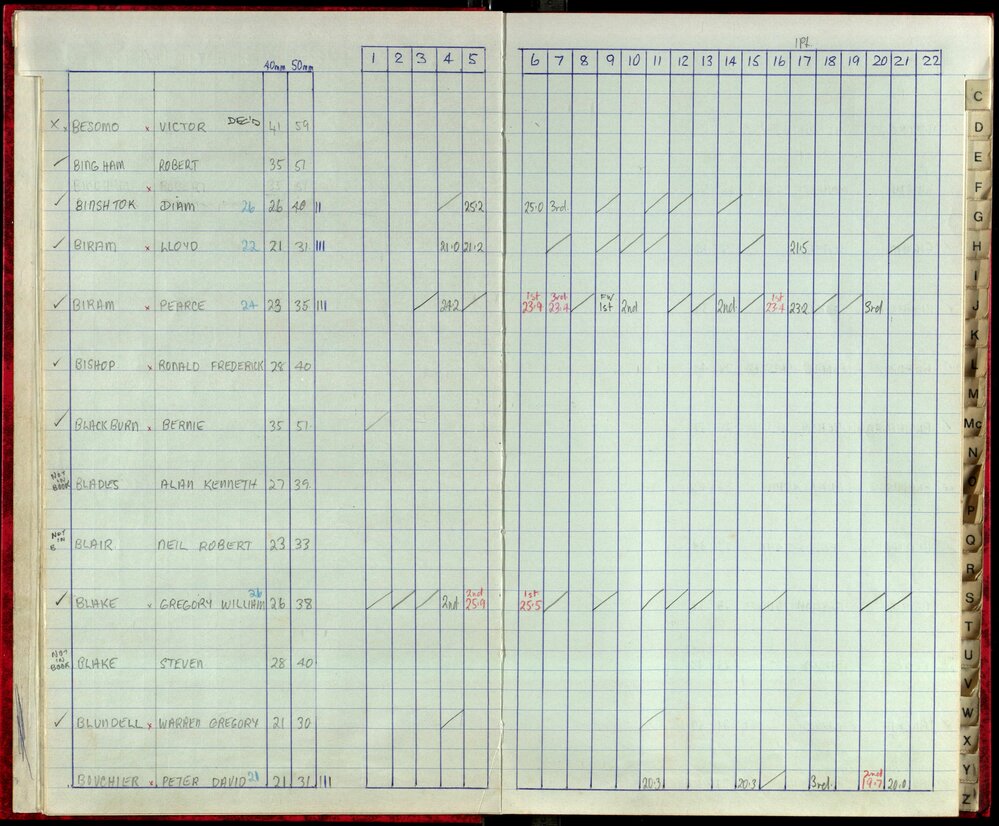 1Pt.
40mm 50mm 1 2 3 4 5 6 7 8 9 10 11 12 13 14 15 16 17 18 19 20 21 22
X x BESOMO x VICTOR DEC'D 41 59
✓ BINGHAM ROBERT 35 51
x ROBERT 35 51
✓ BINSHTOK DIAM 26 26 40 || / 25.2 25.0 3rd. / / / /
✓ BIRAM x LLOYD 22 21 31 ||| 21.0 21.2 / / / / / 21.5 /
1st 3rd FW 1st
✓ BIRAM x PEARCE 24 23 35 ||| / 24.2 / 23.9 23.4 / 1st 2nd / / 2nd / 23.4 23.2 / / 3rd
✓ BISHOP x RONALD FREDERICK 28 40
✓ BLACKBURN x BERNIE 35 51 /
NOT IN BOOK BLADES ALAN KENNETH 27 39
NOT IN B BLAIR NEIL ROBERT 23 33
26 2nd 1st
✓ BLAKE x GREGORY WILLIAM 26 38 / / / 2nd 25.9 25.5 / / / / / / / /
NOT IN BOOK BLAKE STEVEN 28 40
✓ BLUNDELL x WARREN GREGORY 21 30 / /
2nd
BOUCHIER x PETER DAVID 21 21 31 ||| 20.3 20.3 / 3rd. 19.7 20.0
C
D
E
F
G
H
I
J
K
L
M
Mc
N
O
P
Q
R
S
T
U
V
W
X
Y
Z